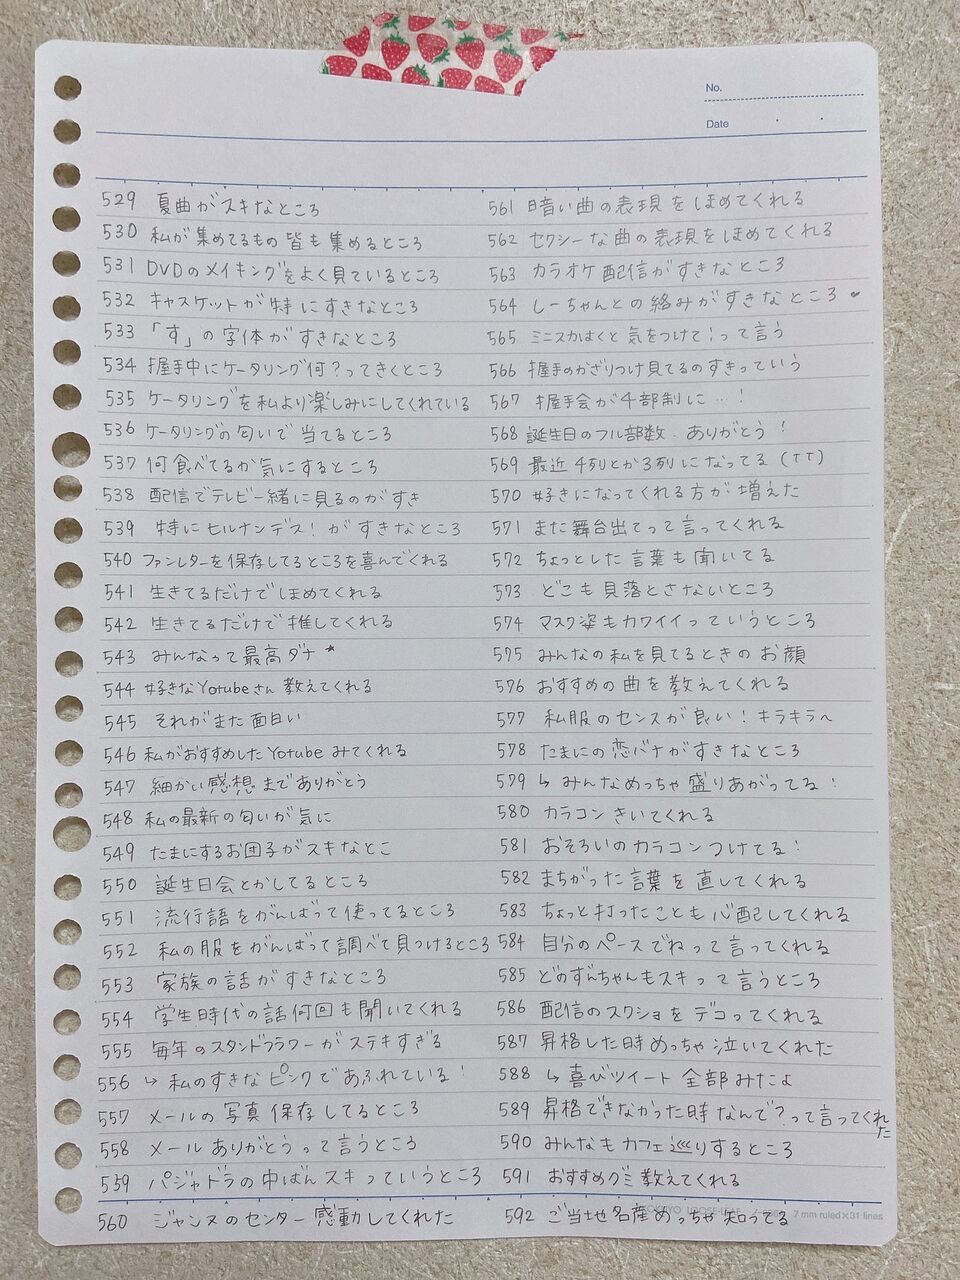 No.
Date
529 夏曲がスキなところ
530 私が集めてるもの皆も集めるところ
531 DVDのメイキングをよく見ているところ
532 キャスケットが特にすきなところ
533 「す」の字体がすきなところ
534 握手中にケータリング何?ってきくところ
535 ケータリングを私より楽しみにしてくれている
536 ケータリングの匂いで当てるところ
537 何食べてるか気にするところ
538 配信でテレビ一緒に見るのがすき
539 特にヒルナンデス!がすきなところ
540 ファンレターを保存してるところを喜んでくれる
541 生きてるだけでほめてくれる
542 生きてるだけで推してくれる
543 みんなって最高ダナ★
544 好きなYotubeさん教えてくれる
545 それがまた面白い
546 私がおすすめしたYotubeみてくれる
547 細かい感想までありがとう
548 私の最新の匂いが気に
549 たまにするお団子がスキなとこ
550 誕生日会とかしてるところ
551 流行語をがんばって使ってるところ
552 私の服をがんばって調べて見つけるところ
553 家族の話がすきなところ
554 学生時代の話何回も聞いてくれる
555 毎年のスタンドフラワーがステキすぎる
556 ↳ 私のすきなピンクであふれている!
557 メールの写真保存してるところ
558 メールありがとうって言うところ
559 パジャドラの中ばんスキっていうところ
560 ジャンヌのセンター感動してくれた
561 暗い曲の表現をほめてくれる
562 セクシーな曲の表現をほめてくれる
563 カラオケ配信がすきなところ
564 しーちゃんとの絡みがすきなところ♥
565 ミニスカはくと気をつけて!って言う
566 握手のかざりつけ見てるのすきっていう
567 握手会が4部制に…!
568 誕生日のフル部数、ありがとう!
569 最近4列とか3列になってる(TT)
570 好きになってくれる方が増えた
571 また舞台出てって言ってくれる
572 ちょっとした言葉も聞いてる
573 どこも見落とさないところ
574 マスク姿もカワイイっていうところ
575 みんなの私を見てるときのお顔
576 おすすめの曲を教えてくれる
577 私服のセンスが良い!キラキラ〜
578 たまにの恋バナがすきなところ
579 ↳ みんなめっちゃ盛りあがってる!
580 カラコンきいてくれる
581 おそろいのカラコンつけてる!
582 まちがった言葉を直してくれる
583 ちょっと打ったことも心配してくれる
584 自分のペースでねって言ってくれる
585 どのずんちゃんもスキって言うところ
586 配信のスクショをデコってくれる
587 昇格した時めっちゃ泣いてくれた
588 ↳ 喜びツイート全部みたよ
589 昇格できなかった時なんで?って言ってくれた
590 みんなもカフェ巡りするところ
591 おすすめグミ教えてくれる
592 ご当地名産めっちゃ知ってる
LOOSE-LEAF 7 mm ruled×31 lines